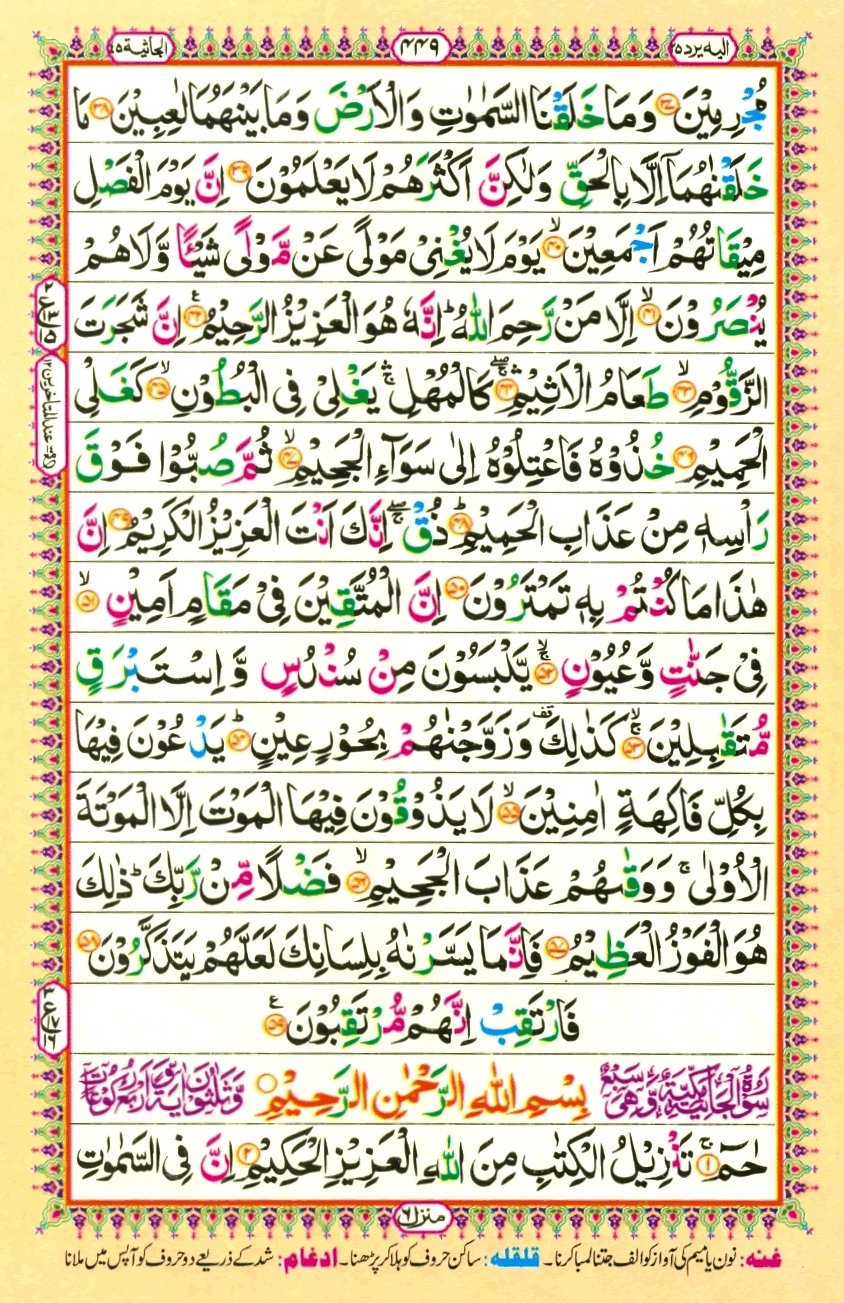 الیه یرده ٢٥ ٤٤٩ الجاثیة ٤٥
مُجْرِمِیْنَ ﴿۳۷﴾ وَمَا خَلَقْنَا السَّمٰوٰتِ وَالْاَرْضَ وَمَا بَیْنَهُمَا لٰعِبِیْنَ ﴿۳۸﴾ مَا
خَلَقْنٰهُمَاۤ اِلَّا بِالْحَقِّ وَلٰكِنَّ اَكْثَرَهُمْ لَا یَعْلَمُوْنَ ﴿۳۹﴾ اِنَّ یَوْمَ الْفَصْلِ
مِیْقَاتُهُمْ اَجْمَعِیْنَ ﴿۴۰﴾ۙ یَوْمَ لَا یُغْنِیْ مَوْلًی عَنْ مَّوْلًی شَیْـًٔا وَّلَا هُمْ
یُنْصَرُوْنَ ﴿۴۱﴾ۙ اِلَّا مَنْ رَّحِمَ اللّٰهُ ؕ اِنَّهٗ هُوَ الْعَزِیْزُ الرَّحِیْمُ ﴿۴۲﴾ اِنَّ شَجَرَتَ
الزَّقُّوْمِ ﴿۴۳﴾ۙ طَعَامُ الْاَثِیْمِ ﴿۴۴﴾ كَالْمُهْلِ ۛۚ یَغْلِیْ فِی الْبُطُوْنِ ﴿۴۵﴾ۙ كَغَلْیِ
الْحَمِیْمِ ﴿۴۶﴾ خُذُوْهُ فَاعْتِلُوْهُ اِلٰی سَوَآءِ الْجَحِیْمِ ﴿۴۷﴾ۙ ثُمَّ صُبُّوْا فَوْقَ
رَاْسِهٖ مِنْ عَذَابِ الْحَمِیْمِ ﴿۴۸﴾ؕ ذُقْ ۚۙ اِنَّكَ اَنْتَ الْعَزِیْزُ الْكَرِیْمُ ﴿۴۹﴾ اِنَّ
هٰذَا مَا كُنْتُمْ بِهٖ تَمْتَرُوْنَ ﴿۵۰﴾ اِنَّ الْمُتَّقِیْنَ فِیْ مَقَامٍ اَمِیْنٍ ﴿۵۱﴾ۙ
فِیْ جَنّٰتٍ وَّعُیُوْنٍ ﴿۵۲﴾ۚۙ یَّلْبَسُوْنَ مِنْ سُنْدُسٍ وَّاِسْتَبْرَقٍ
مُّتَقٰبِلِیْنَ ﴿۵۳﴾ۚۙ كَذٰلِكَ ۫ وَزَوَّجْنٰهُمْ بِحُوْرٍ عِیْنٍ ﴿۵۴﴾ؕ یَدْعُوْنَ فِیْهَا
بِكُلِّ فَاكِهَةٍ اٰمِنِیْنَ ﴿۵۵﴾ۙ لَا یَذُوْقُوْنَ فِیْهَا الْمَوْتَ اِلَّا الْمَوْتَةَ
الْاُوْلٰی ۚ وَوَقٰىهُمْ عَذَابَ الْجَحِیْمِ ﴿۵۶﴾ۙ فَضْلًا مِّنْ رَّبِّكَ ؕ ذٰلِكَ
هُوَ الْفَوْزُ الْعَظِیْمُ ﴿۵۷﴾ فَاِنَّمَا یَسَّرْنٰهُ بِلِسَانِكَ لَعَلَّهُمْ یَتَذَكَّرُوْنَ ﴿۵۸﴾
فَارْتَقِبْ اِنَّهُمْ مُّرْتَقِبُوْنَ ﴿۵۹﴾
سُوْرَةُ الْجَاثِیَةِ مَكِّیَّةٌ وَّهِیَ سَبْعٌ بِسْمِ اللّٰهِ الرَّحْمٰنِ الرَّحِیْمِ وَّثَلٰثُوْنَ اٰیَةً وَّاَرْبَعُ رُكُوْعَاتٍ
حٰمٓ ﴿۱﴾ۚ تَنْزِیْلُ الْكِتٰبِ مِنَ اللّٰهِ الْعَزِیْزِ الْحَكِیْمِ ﴿۲﴾ اِنَّ فِی السَّمٰوٰتِ
منزل ٦
غنه: نون یا میم کی آواز کو الف جتنا لمبا کرنا۔ قلقله: ساکن حروف کو ہلا کر پڑھنا۔ ادغام: شد کے ذریعے دو حروف کو آپس میں ملانا